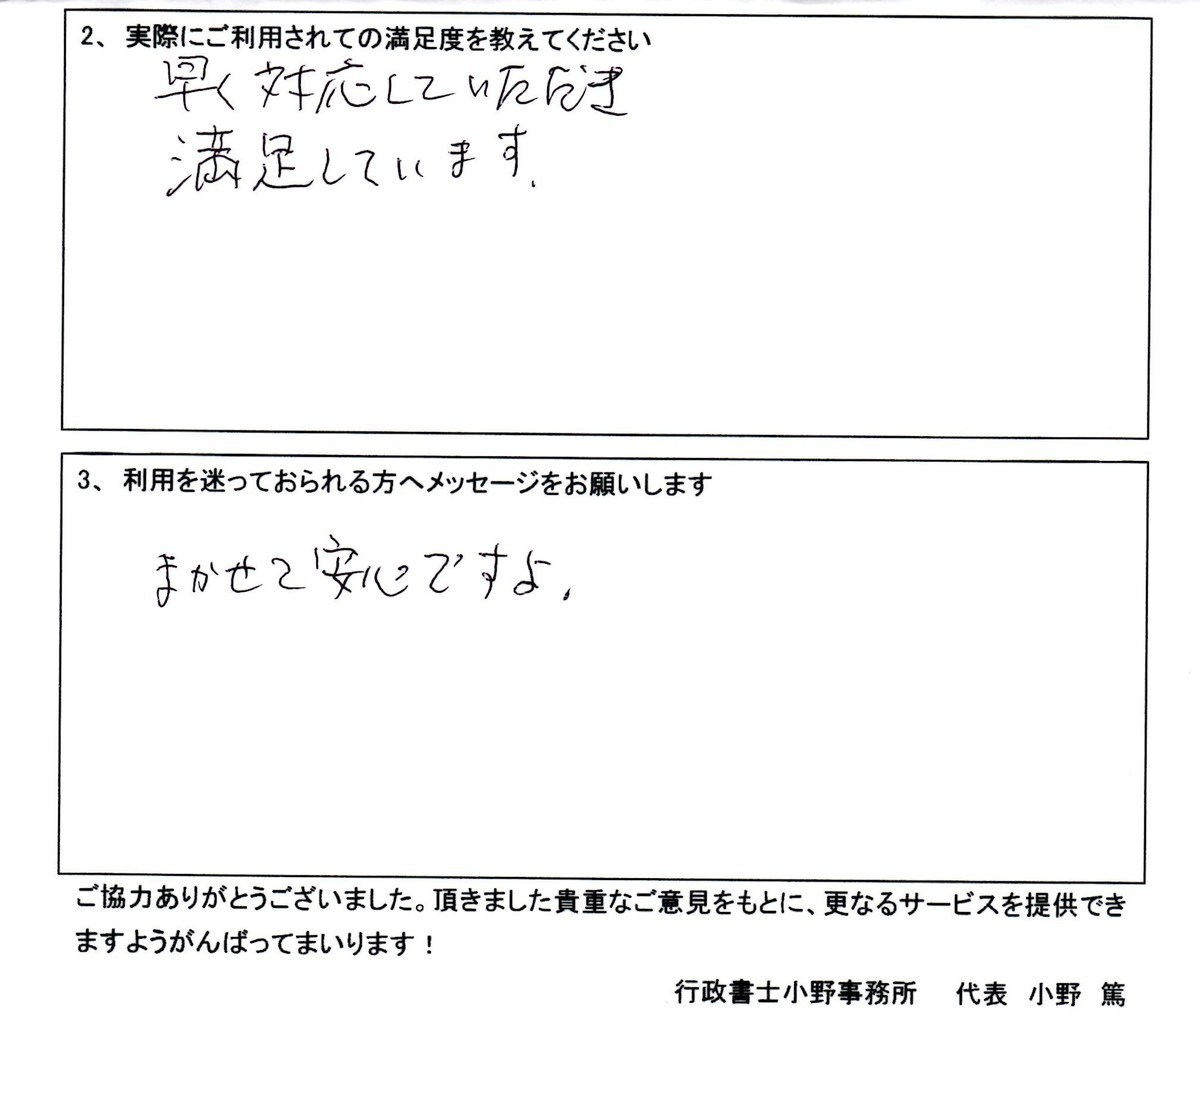 2、実際にご利用されての満足度を教えてください
早く対応していただき
満足しています.
3、利用を迷っておられる方へメッセージをお願いします
まかせて安心ですよ.
ご協力ありがとうございました。頂きました貴重なご意見をもとに、更なるサービスを提供でき
ますようがんばってまいります！
行政書士小野事務所　代表　小野　篤